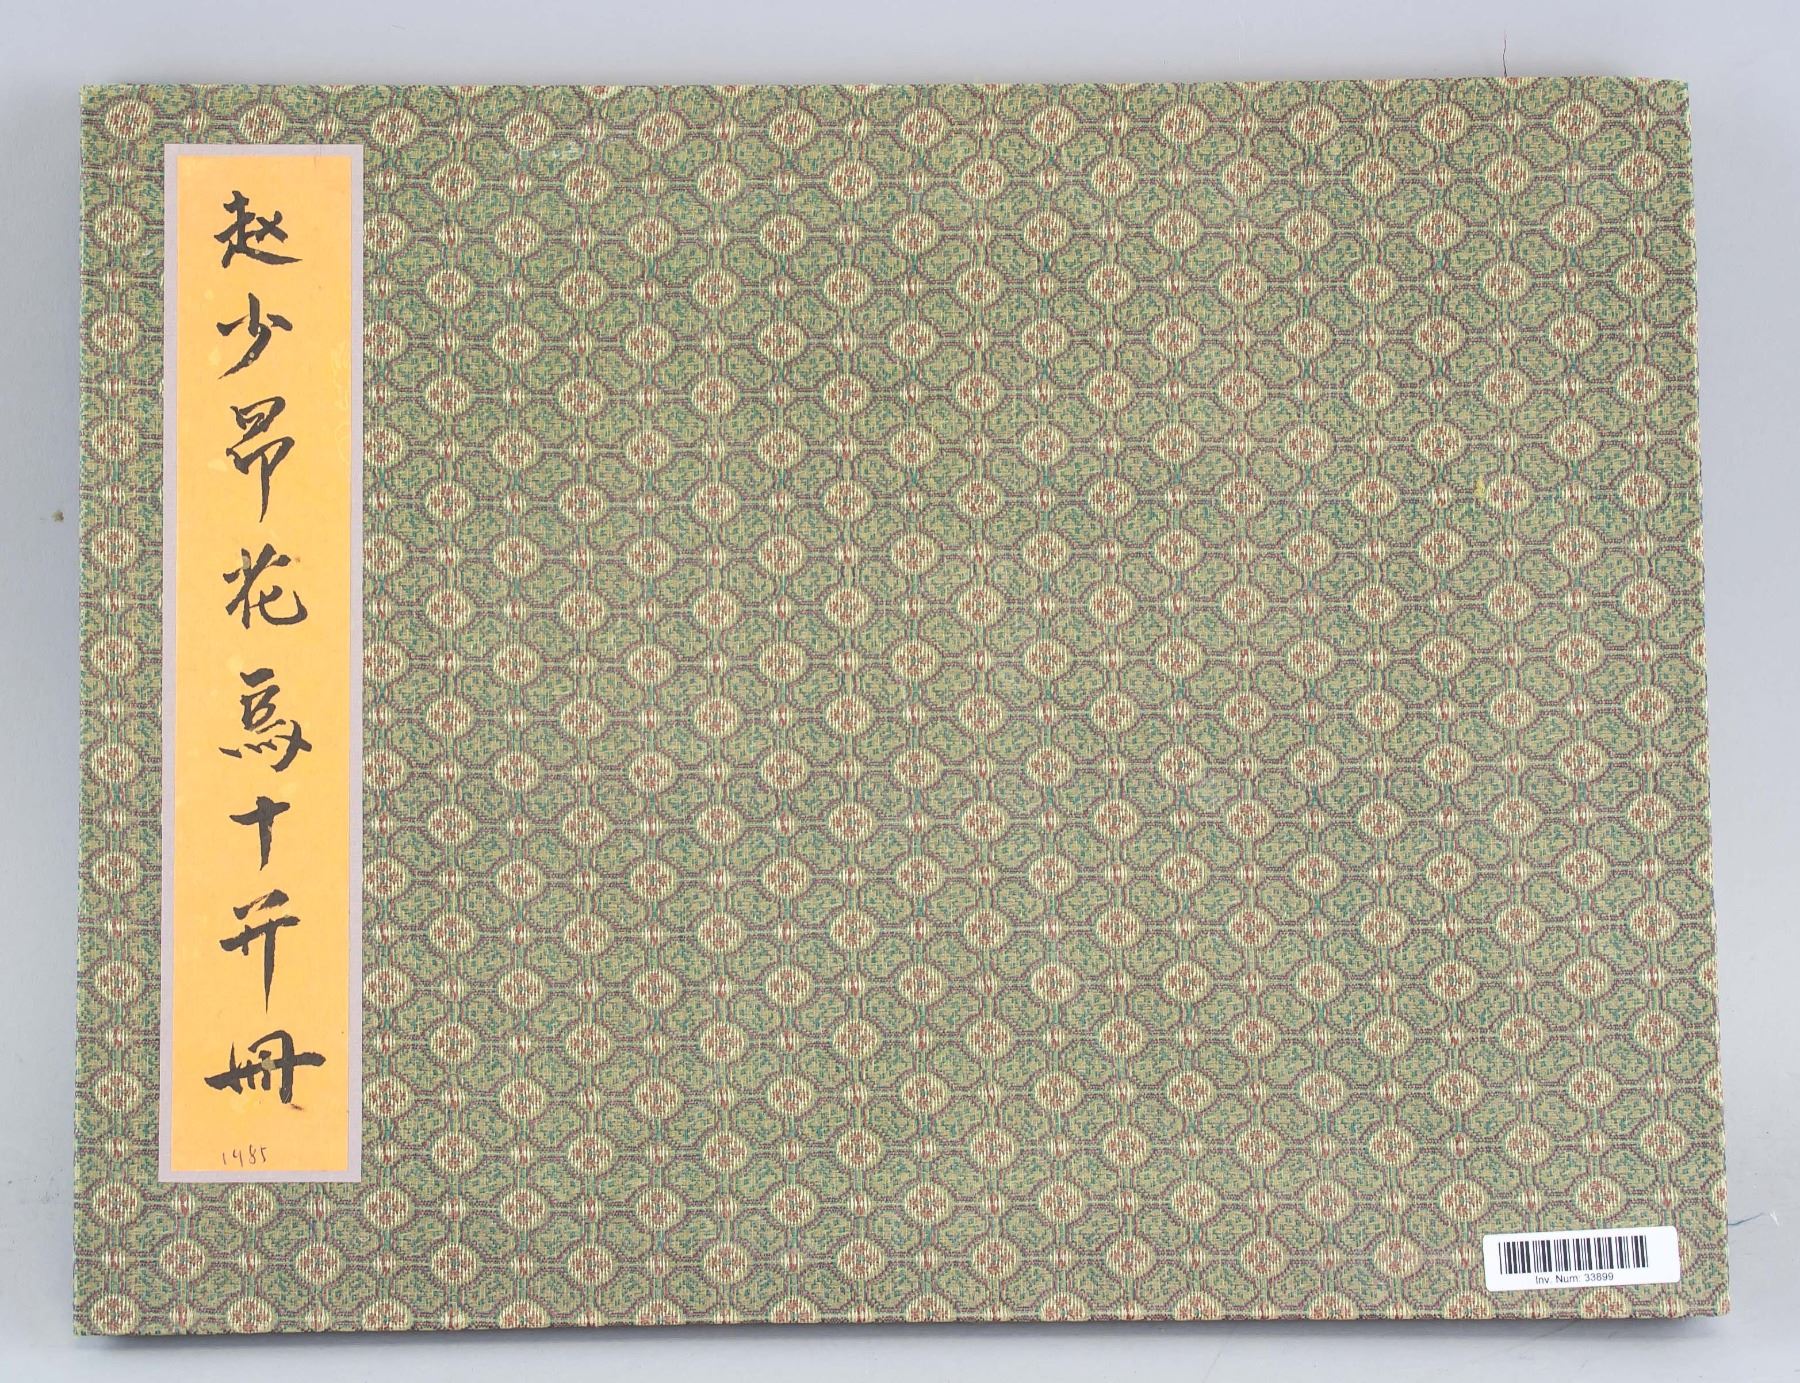 赵少昂花鸟十开册
1985
Inv. Num: 33899